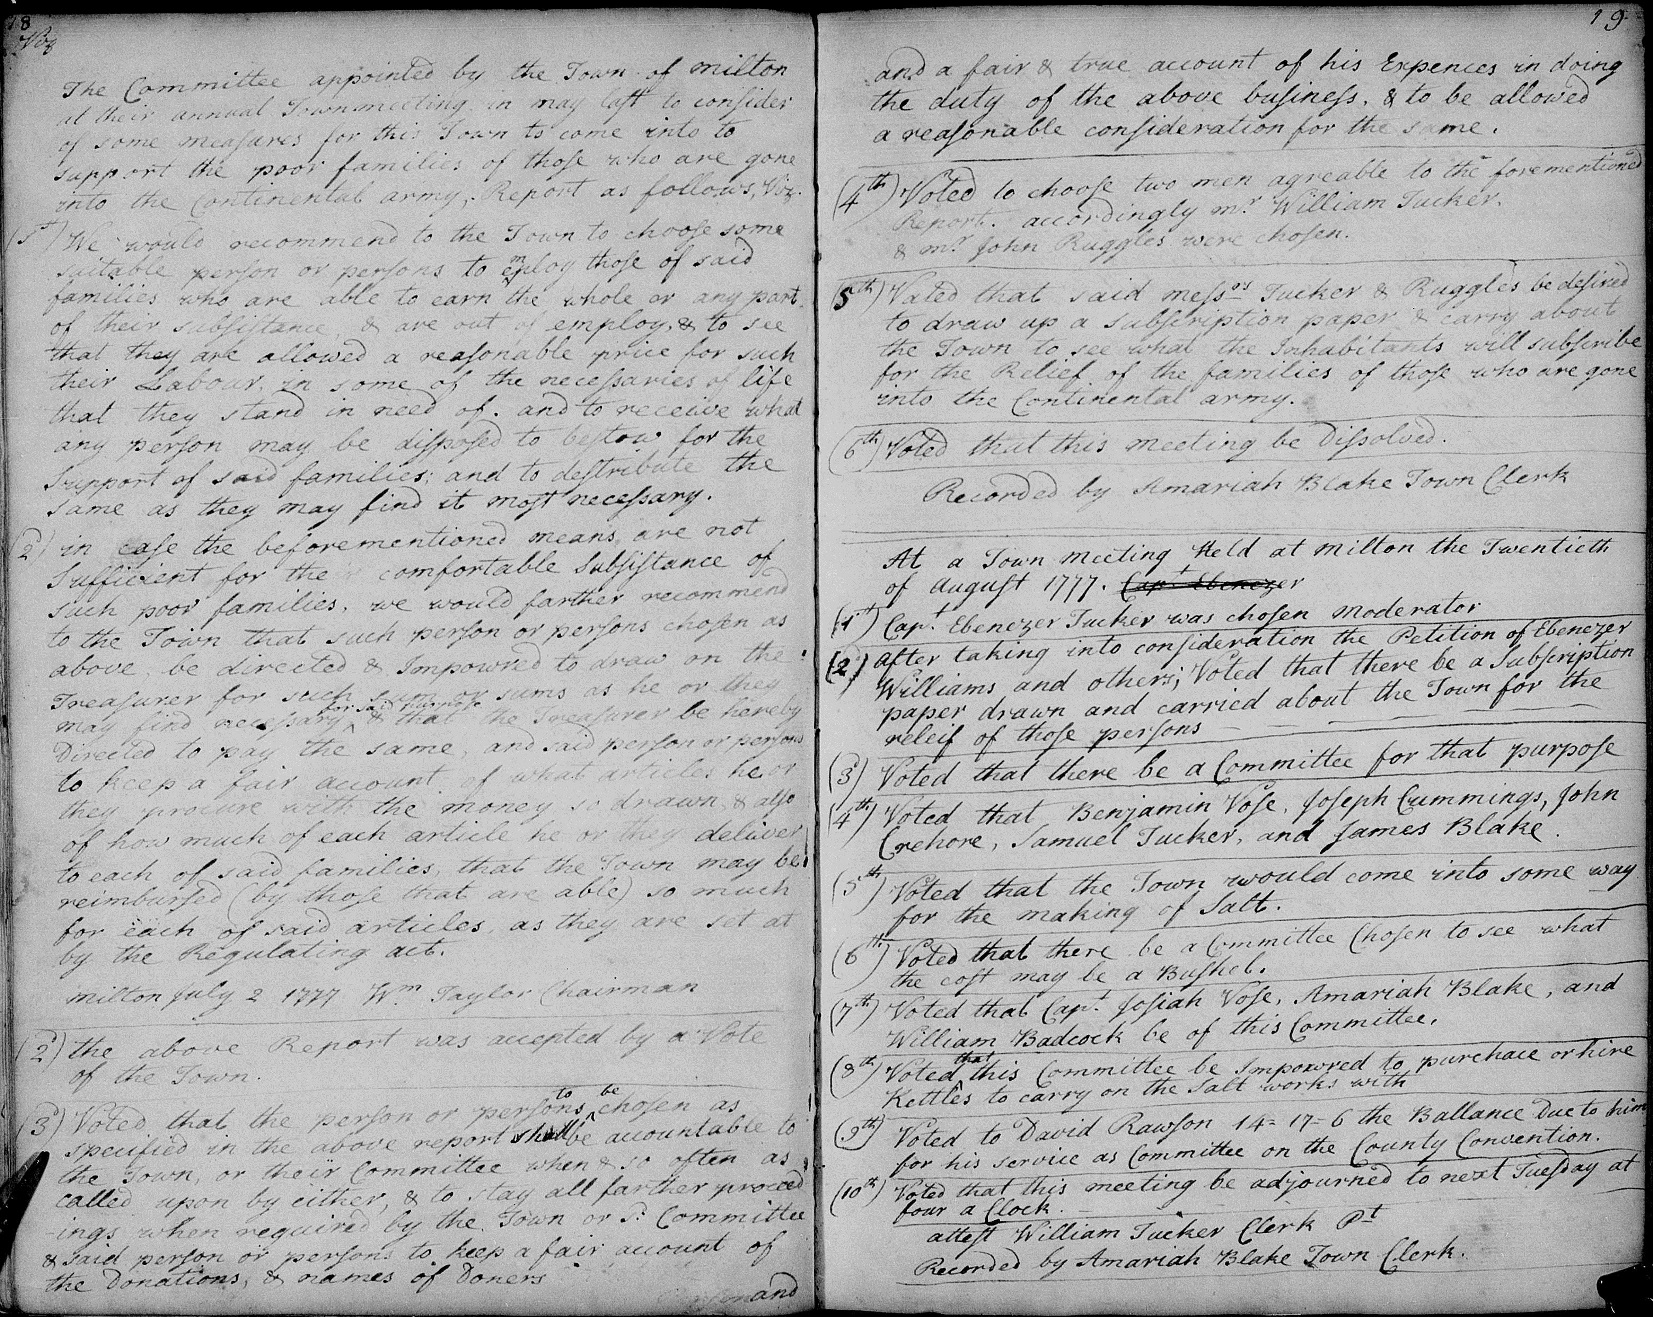 18
Viz
The Committee appointed by the Town of milton
at their annual Townmeeting in may last to consider
of some measures for this Town to come into to
support the poor families of those who are gone
into the Continental army, Report as follows, Viz.
(1st) We would recommend to the Town to choose some
suitable person or persons to employ those of said
families who are able to earn the whole or any part
of their subsistance, & are out of employ, & to see
that they are allowed a reasonable price for such
their Labour, in some of the necessaries of life
that they stand in need of. and to receive what
any person may be disposed to bestow for the
Support of said families; and to destribute the
same as they may find it most necessary.
(2d) in case the beforementioned means are not
Sufficient for the comfortable Subsistance of
such poor families, we would farther recommend
to the Town that such person or persons chosen as
above, be directed & Impowred to draw on the
Treasurer for such sum or sums as he or they
may find necessary for said purpose & that the Treasurer be hereby
Directed to pay the same, and said person or persons
to keep a fair account of what articles he or
they procure with the money so drawn & also
of how much of each article he or they deliver
to each of said families, that the Town may be
reimbursed (by those that are able) so much
for each of said articles, as they are set at
by the Regulating act.
milton July 2 1777 Wm Taylor Chairman
(2d) the above Report was accepted by a Vote
of the Town.
(3d) Voted that the person or persons to be chosen as
specified in the above report shall be accountable to
the Town, or their Committee when & so often as
called upon by either, & to stay all farther proceed
-ings when required by the Town or sd Committee
& said person or persons to keep a fair account of
the Donations, & names of Doners
and
19
and a fair & true account of his Expences in doing
the duty of the above business, & to be allowed
a reasonable consideration for the same.
(4th) Voted to choose two men agreable to the forementioned
Report. accordingly mr William Tucker,
& mr John Ruggles were chosen.
5th) Voted that said messrs Tucker & Ruggles be desired
to draw up a subscription paper & carry about
the Town to see what the Inhabitants will subscribe
for the Relief of the families of those who are gone
into the Continental army.
(6th) Voted that this meeting be Dissolved.
Recorded by Amariah Blake Town Clerk
At a Town meeting Held at milton the Twentieth
of august 1777. Cap. Ebenezer
(1st) Capt. Ebenezer Tucker was chosen moderator
(2d) after taking into consideration the Petition of Ebenezer
Williams and others; Voted that there be a Subscription
paper drawn and carried about the Town for the
releif of those persons
(3d) Voted that there be a Committee for that purpose
(4th) Voted that Benjamin Vose, Joseph Cummings, John
Crehore, Samuel Tucker, and James Blake.
(5th) Voted that the Town would come into some way
for the making of Salt.
(6th) Voted that there be a Committee Chosen to see what
the cost may be a Bushel.
(7th) Voted that Capt. Josiah Vose, Amariah Blake, and
William Badcock be of this Committee.
(8th) Voted that this Committee be Impowred to purchace or hire
Kettles to carry on the Salt works with
(9th) Voted to David Rawson 14=17=6 the Ballance Due to him
for his service as Committee on the County Convention.
(10th) Voted that this meeting be adjourned to next Tuesday at
four a Clock.
attest William Tucker Clerk Pt
Recorded by Amariah Blake Town Clerk.